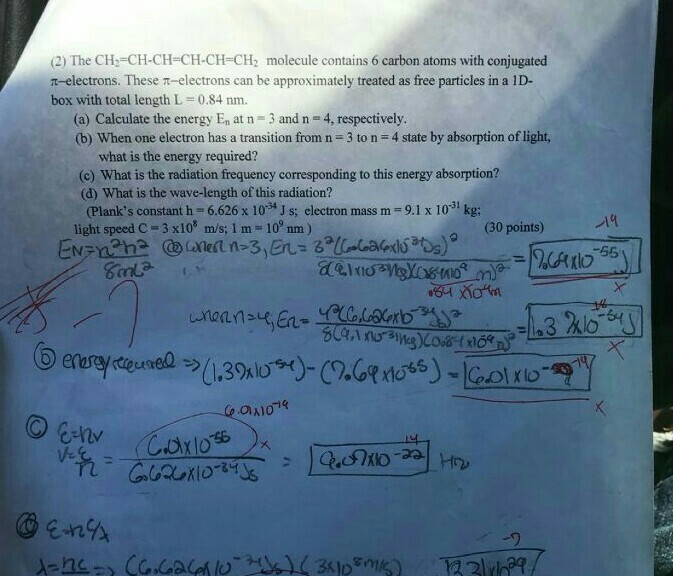 (2) The CH₂=CH-CH=CH-CH=CH₂ molecule contains 6 carbon atoms with conjugated
π–electrons. These π–electrons can be approximately treated as free particles in a 1D-
box with total length L = 0.84 nm.
(a) Calculate the energy Eₙ at n = 3 and n = 4, respectively.
(b) When one electron has a transition from n = 3 to n = 4 state by absorption of light,
what is the energy required?
(c) What is the radiation frequency corresponding to this energy absorption?
(d) What is the wave-length of this radiation?
(Plank's constant h = 6.626 x 10⁻³⁴ J s; electron mass m = 9.1 x 10⁻³¹ kg;
light speed C = 3 x10⁸ m/s; 1 m = 10⁹ nm )
(30 points)
-19
EN=n²h²/8mL² ⓐ when n=3, En = 3²(6.626x10⁻³⁴Js)²/8(9.1x10⁻³¹kg)(0.84x10⁹m)² = 7.69x10⁻⁵⁵J
.84 x10⁻⁹m
-7
when n=4, En = 4²(6.626x10⁻³⁴Js)²/8(9.1x10⁻³¹kg)(0.84x10⁹m)² = 1.37x10⁻⁵⁴J
ⓑ energy required => (1.37x10⁻⁵⁴)-(7.69x10⁻⁵⁵) = 6.01x10⁻¹⁹
6.01x10⁻¹⁹
ⓒ E=hv
V=E/h = 6.01x10⁻⁵⁵/6.626x10⁻³⁴Js = 9.07x10⁻²² Hz
14
ⓓ E=hc/λ
-7
λ=hc => (6.626x10⁻³⁴Js)(3x10⁸m/s)